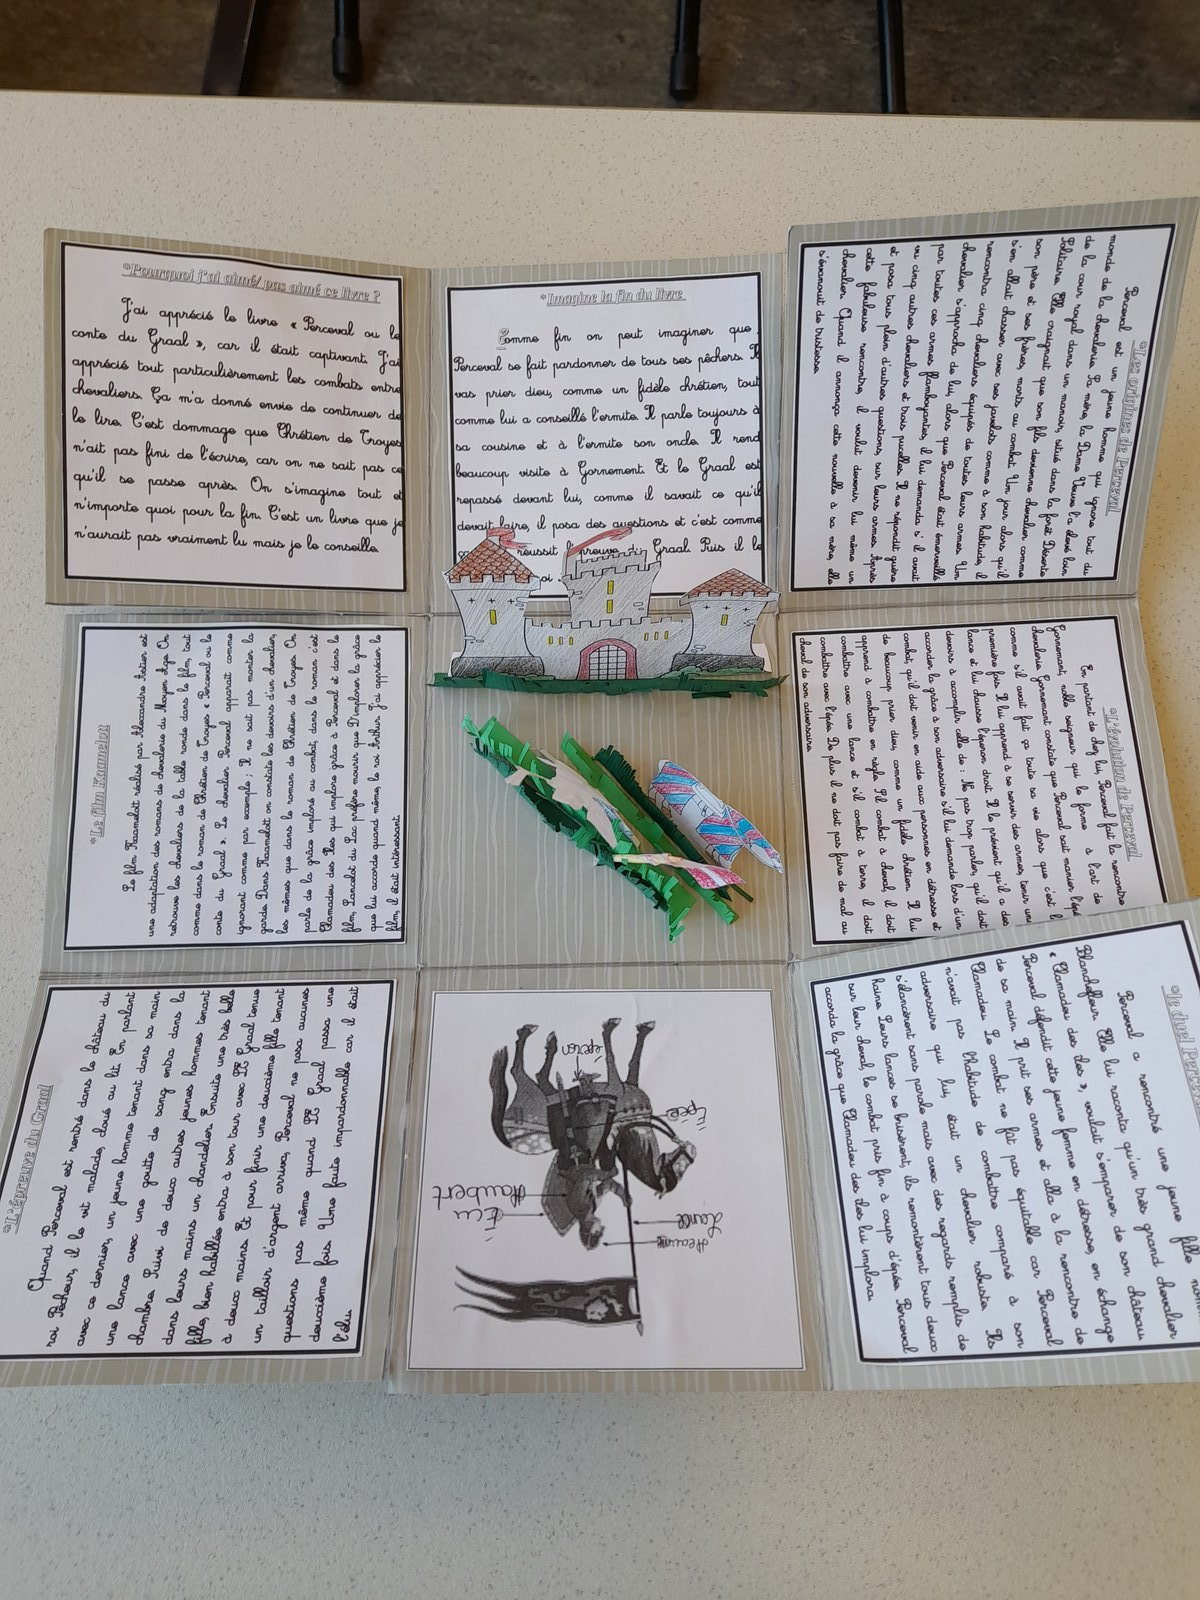 *Pourquoi j'ai aimé/ pas aimé ce livre ?
J'ai apprécié le livre « Perceval ou le
conte du Graal », car il était captivant. J'ai
apprécié tout particulièrement les combats entre
chevaliers. Ça m'a donné envie de continuer de
le lire. C'est dommage que Chrétien de Troyes
n'ait pas fini de l'écrire, car on ne sait pas ce
qu'il se passe après. On s'imagine tout et
n'importe quoi pour la fin. C'est un livre que je
n'aurait pas vraiment lu mais je le conseille.
*Imagine la fin du livre
Comme fin on peut imaginer que
Perceval se fait pardonner de tous ses pêchers. Il
vas prier dieu, comme un fidèle chrétien, tout
comme lui a conseillé l'ermite. Il parle toujours à
sa cousine et à l'ermite son oncle. Il rend
beaucoup visite à Gornement. Et le Graal est
repassé devant lui, comme il savait ce qu'il
devait faire, il posa des questions et c'est comme
réussit l'épreuve du Graal. Puis il le
*Les origines de Perceval
Perceval est un jeune homme qui ignore tout du
monde de la chevalerie. Sa mère, la Dame Veuve l'a élevé loin
de la cour royal dans un manoir, situé dans la forêt Déserte
Solitaire. Elle craignait que son fils devienne chevalier comme
son père et ses frères, morts au combat. Un jour alors qu'il
s'en allait chasser avec ses javelots comme à son habitude, il
rencontra cinq chevaliers équipés de toutes leurs armes. Un
chevalier s'approcha de lui, alors que Perceval était émerveillé
par toutes ces armes flamboyantes, il lui demanda s'il avait
vu cinq autres chevaliers et trois pucelles. Il ne répondit guère
et posa tous plein d'autres questions, sur leurs armes. Après
cette fabuleuse rencontre, il voulut devenir lui même un
chevalier. Quand il annonça cette nouvelle à sa mère, elle
s'évanouit de tristesse.
*Le film Kaamelott
Le film Kaamelott réalisé par Alexandre Astier est
une adaptation des romans de chevalerie du Moyen Age. On
retrouve les chevaliers de la table ronde dans le film, tout
comme dans le roman de Chrétien de Troyes « Perceval ou le
conte du Graal ». Le chevalier Perceval apparait comme
ignorant comme par exemple ; Il ne sait pas monter la
garde. Dans Kaamelott on constate les devoirs d'un chevalier,
les mêmes que dans le roman de Chrétien de Troyes. On
parle de la grâce imploré au combat, dans le roman c'est
Clamadeu des Iles qui implore grâce à Perceval et dans le
film, Lancelot du Lac préfère mourir que D'implorer la grâce
que lui accorde quand même, le roi Arthur. J'ai apprécier le
film, il était intéressant.
*L'évolution de Perceval
En partant de chez lui, Perceval fait la rencontre
Gornemant, noble seigneur qui le forme à l'art de
chevalerie. Gornemant constate que Perceval sait manier l'épée
comme s'il avait fait ça toute sa vie alors que c'est
première fois. Il lui apprend à se servir des armes, tenir une
lance et lui chausse l'éperon droit. Il le prévient qu'il a des
devoirs à accomplir celle de : Ne pas trop parler, qu'il doit
accorder la grâce à son adversaire s'il lui demande lors d'un
combat, qu'il doit venir en aide aux personnes en détresse et
de beaucoup prier dieu, comme un fidèle chrétien. Il lui
apprend à combattre en règle. S'il combat à cheval, il doit
combattre avec une lance et s'il combat à terre, il doit
combattre avec l'épée. De plus il ne doit pas faire de mal au
cheval de son adversaire.
*L'épreuve du Graal
Quand Perceval est rentré dans le château du
roi Pêcheur, il le vit malade, cloué au lit. En parlant
avec ce dernier, un jeune homme tenant dans sa main
une lance avec une goutte de sang entra dans la
chambre. Suivi de deux autres jeunes hommes tenant
dans leurs mains un chandelier. Ensuite une très belle
fille, bien habillée entra à son tour avec LE Graal tenue
à deux mains. Et pour finir une deuxième fille tenant
un tailloir d'argent arriva, Perceval ne posa aucunes
questions pas même quand LE Graal passa une
deuxième fois. Une faute impardonnable car il était
l'élu.
éperon
Épée
Haubert
Écu
Lance
Heaume
*le duel Perceva
Perceval a rencontré une jeune fille nom
Blanchefleur. Elle lui raconta qu'un très grand chevalier
« Clamadeu des iles », voulait s'emparer de son château
Perceval défendit cette jeune femme en détresse, en échange
de sa main. Il prit ses armes et alla à la rencontre de
Clamadeu. Le combat ne fût pas équitable car Perceval
n'avait pas l'habitude de combattre comparé à son
adversaire qui lui, était un chevalier robuste. Ils
s'élancèrent sans parole mais avec des regards remplis de
haine. Leurs lances se brisèrent, ils remontèrent tous deux
sur leur cheval, le combat pris fin à coups d'épée. Perceval
accorda la grâce que Clamadeu des iles lui implora.